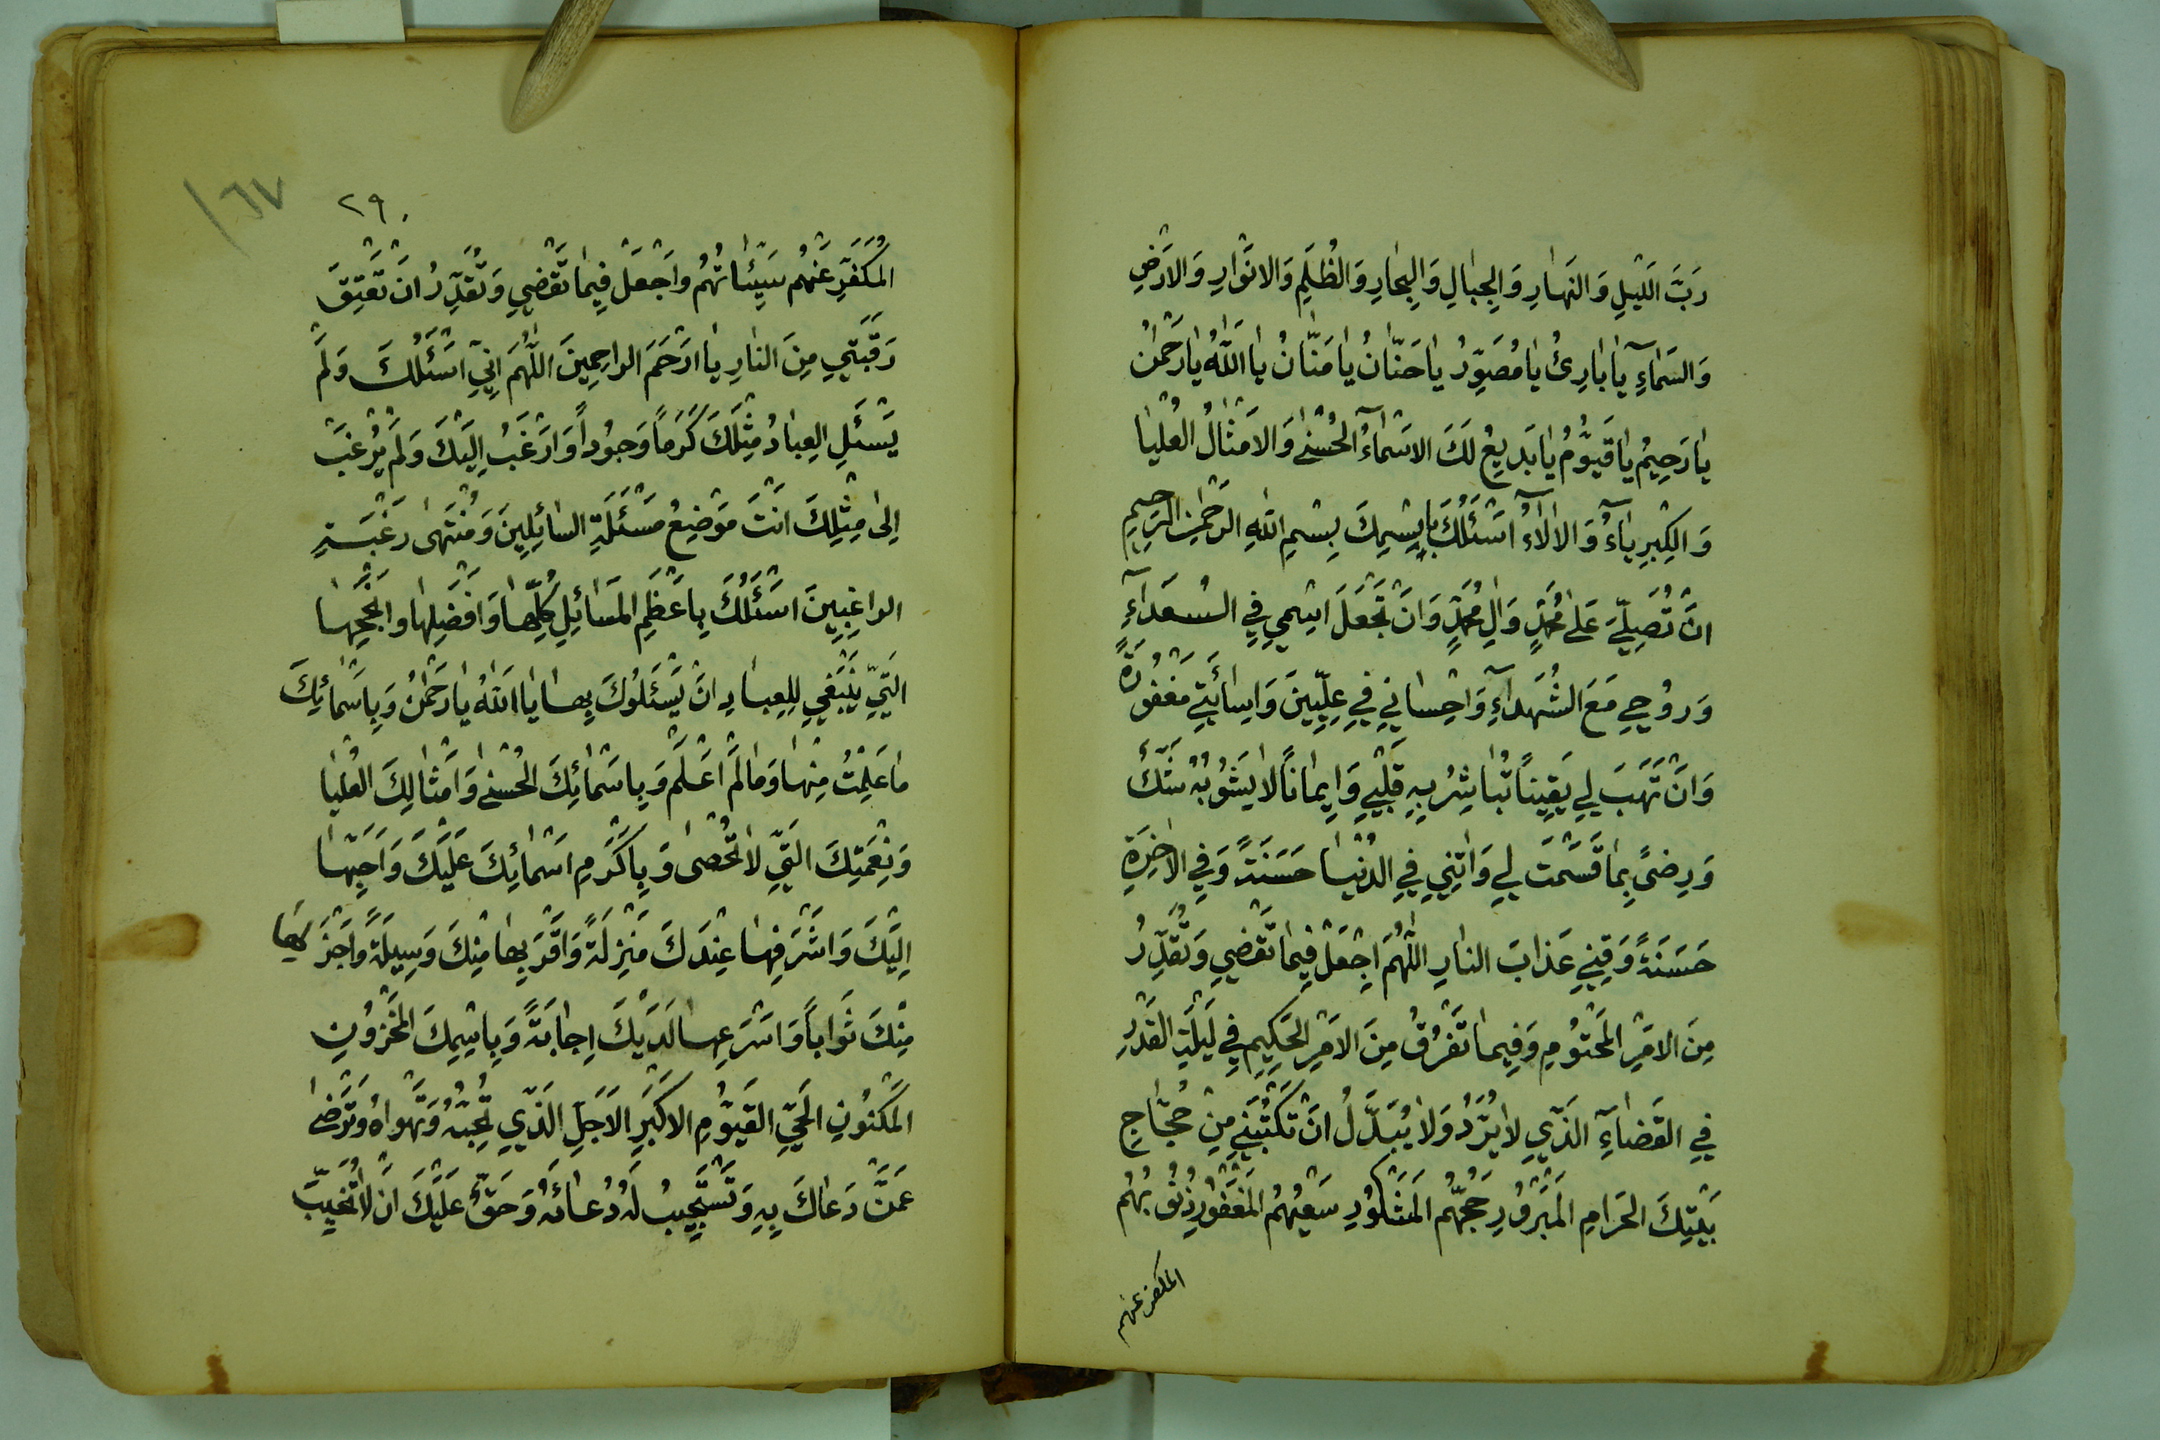 رَبَّ اللَّيْلِ وَالنَّهارِ وَالجِبالِ وَالبِحارِ وَالظُّلَمِ وَالانْوارِ وَالارْضِ
وَالسَّماءِ يا بارِئُ يا مُصَوِّرُ يا حَنّانُ يا مَنّانُ يا اَللّٰهُ يا رَحْمٰنُ
يا رَحِيمُ يا قَيُّومُ يا بَدِيعُ لَكَ الاسْماءُ الحُسْنىٰ وَالامْثالُ العُلْيا
وَالكِبْرِياءُ وَالآلاءُ اسْئَلُكَ بِاسْمِكَ بِسْمِ اللهِ الرَّحْمٰنِ الرَّحِيمِ
انْ تُصَلِّيَ عَلىٰ مُحَمَّدٍ وَالِ مُحَمَّدٍ وَانْ تَجْعَلَ اسْمِي فِي السُّعَداءِ
وَرُوحِي مَعَ الشُّهَداءِ وَاحْسانِي فِي عِلِّيِّينَ وَاِسائَتِي مَغْفُورَةً
وَانْ تَهَبَ لِي يَقِيناً تُباشِرُ بِهِ قَلْبِي وَاِيماناً لا يَشُوبُهُ شَكٌّ
وَرِضىً بِما قَسَمْتَ لِي وَاتِنِي فِي الدُّنْيا حَسَنَةً وَفِي الاخِرَةِ
حَسَنَةً وَقِنِي عَذابَ النّارِ اللّٰهُمَّ اجْعَلْ فِيما تَقْضِي وَتُقَدِّرُ
مِنَ الامْرِ المَحْتُومِ وَفِيما تَفْرُقُ مِنَ الامْرِ الحَكِيمِ فِي لَيْلَةِ القَدْرِ
فِي القَضاءِ الَّذِي لا يُرَدُّ وَلا يُبَدَّلُ انْ تَكْتُبَنِي مِنْ حُجّاجِ
بَيْتِكَ الحَرامِ المَبْرُورِ حَجُّهُمْ المَشْكُورِ سَعْيُهُمْ المَغْفُورِ ذُنُوبُهُمْ
المكفر عنهم
٢٩٠
١٦٧
المُكَفَّرِ عَنْهُمْ سَيِّئاتُهُمْ وَاجْعَلْ فِيما تَقْضِي وَتُقَدِّرُ انْ تُعْتِقَ
رَقَبَتِي مِنَ النّارِ يا ارْحَمَ الراحِمِينَ اللّٰهُمَّ اِنِّي اسْئَلُكَ وَلَمْ
يَسْئَلِ العِبادُ مِثْلَكَ كَرَماً وَجُوداً وَارْغَبُ اِلَيْكَ وَلَمْ يُرْغَبْ
اِلىٰ مِثْلِكَ انْتَ مَوْضِعُ مَسْئَلَةِ السّائِلِينَ وَمُنْتَهىٰ رَغْبَةِ
الراغِبِينَ اسْئَلُكَ بِاعْظَمِ المَسائِلِ كُلِّها وَافْضَلِها وَانْجَحِها
الَّتِي يَنْبَغِي لِلعِبادِ انْ يَسْئَلُوكَ بِها يا اَللّٰهُ يا رَحْمٰنُ وَبِاسْمائِكَ
ما عَلِمْتُ مِنْها وَما لَمْ اعْلَمْ وَبِاسْمائِكَ الحُسْنىٰ وَامْثالِكَ العُلْيا
وَنِعْمَتِكَ الَّتِي لا تُحْصىٰ وَبِاكْرَمِ اسْمائِكَ عَلَيْكَ وَاحَبِّها
اِلَيْكَ وَاشْرَفِها عِنْدَكَ مَنْزِلَةً وَاقْرَبِها مِنْكَ وَسِيلَةً وَاجْزَلِها
مِنْكَ ثَواباً وَاسْرَعِها لَدَيْكَ اِجابَةً وَبِاسْمِكَ المَخْزُونِ
المَكْنُونِ الحَيِّ القَيُّومِ الاكْبَرِ الاجَلِّ الَّذِي تُحِبُّهُ وَتَهْواهُ وَتَرْضىٰ
عَمَّنْ دَعاكَ بِهِ وَتَسْتَجِيبُ لَهُ دُعائَهُ وَحَقٌّ عَلَيْكَ انْ لا تُخَيِّبَ